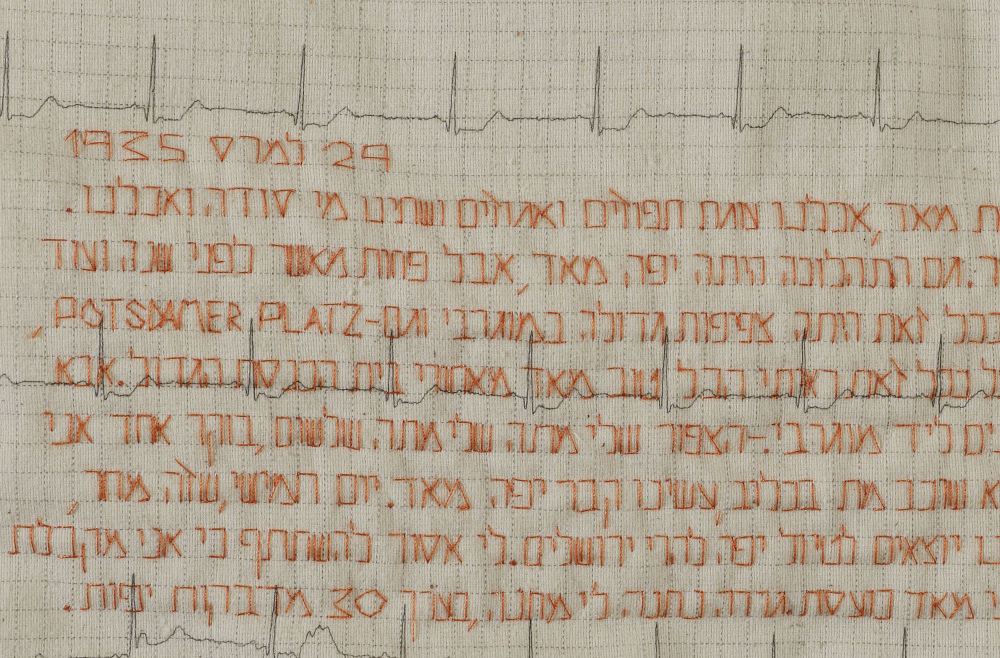 29 למרס 1935
מאד, אכלנו עוגת תפוחים ואגוזים ושתינו מי סודה ואכלנו.
גם התהלוכה היתה יפה מאד, אבל פחות מאשר לפני שנה ועוד
זאת היתה צפיפות גדולה במוגרבי וגם-POTSDAMER PLATZ,
זאת ראיתי הכל טוב מאד מאחורי בית הכנסת הגדול. אבא
ליד מוגרבי.-הצפור שלי מתה שלי מתה שלשום, בוקר אחד אני
שוכב מת בכלוב, עשינו קבר יפה מאד. יום חמישי, שזה מחר,
יוצאים לטיול יפה להרי ירושלים. לי אסור להשתתף כי אני מקבלת
מאד כועסת. גרדה נתנה לי מתנה, בערך 30 מדבקות יפות.